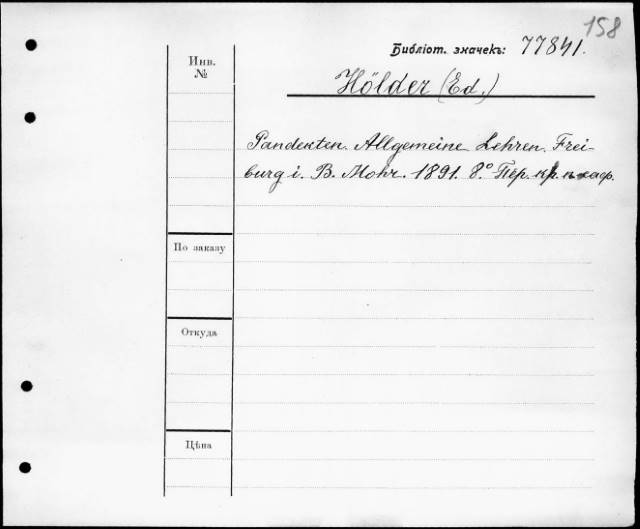 158
Библіот. значекъ: 77841.
Инв.
№
Hölder (Ed.)
Pandekten. Allgemeine Lehren. Frei-
burg i. B. Mohr. 1891. 8.° Пер.
По заказу
Откуда
Цѣна